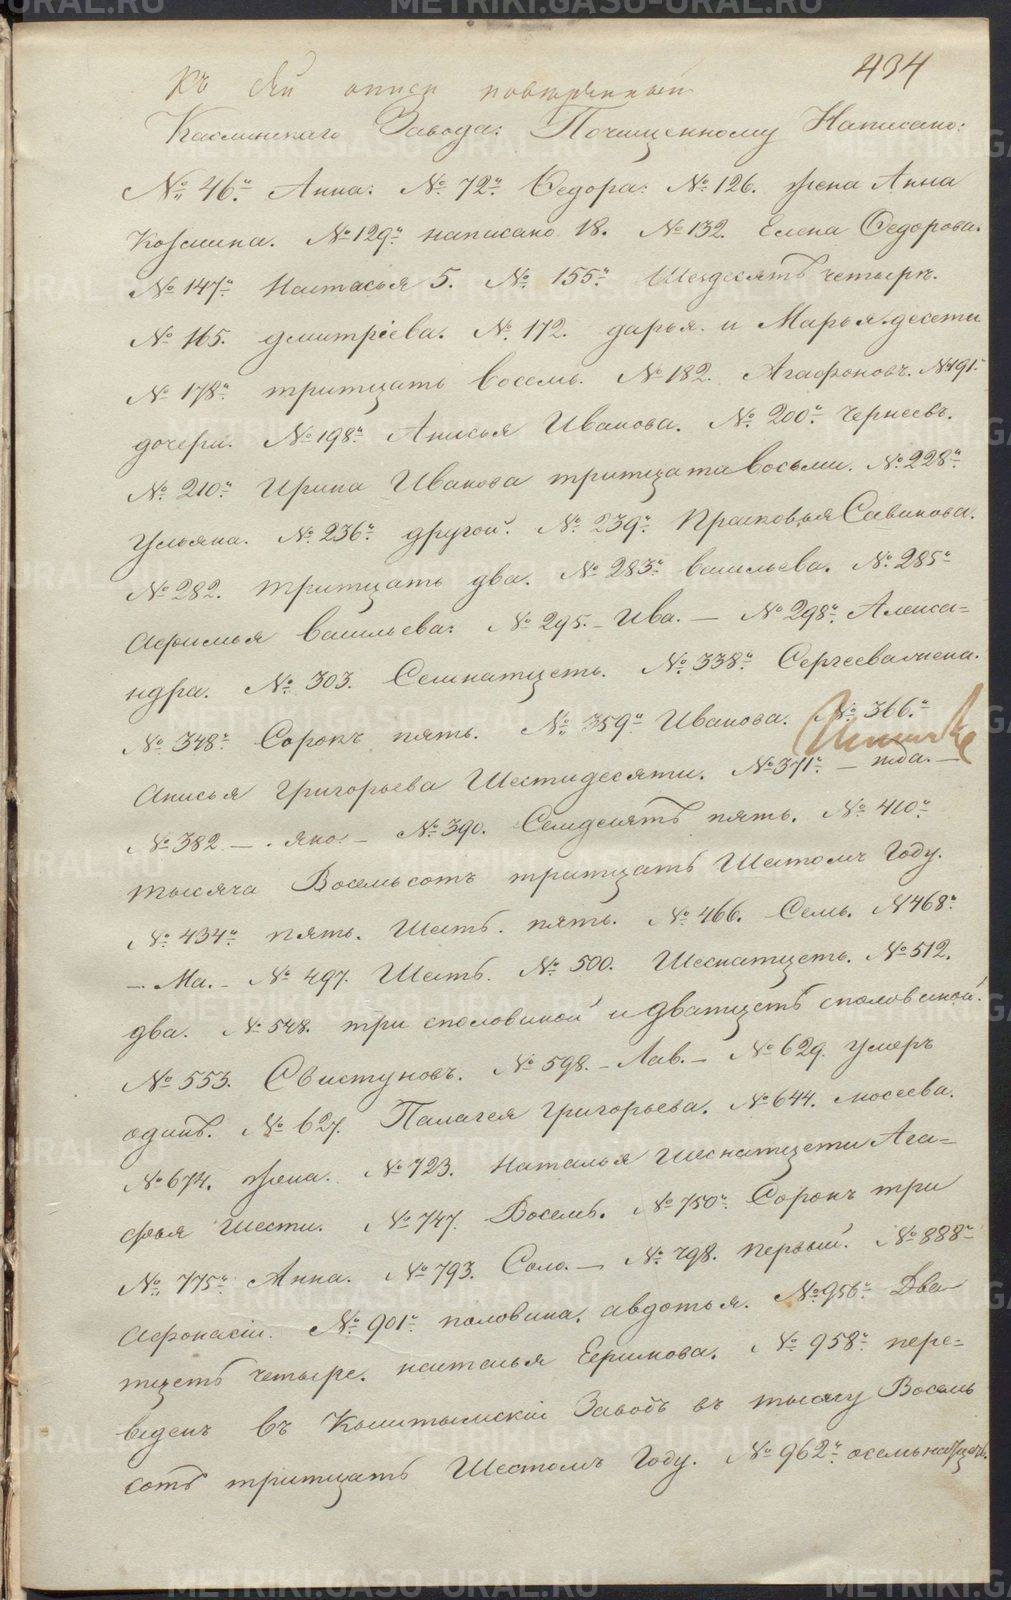 434
Къ сей описи
Каслинскаго Завода: Почищенному Написано:
№ 46.й Анна: № 72.й Ѳедора: № 126. жена Анна
Козмина. № 129.й написано 18. № 132. Елена Ѳедорова.
№ 147.й Настасья 5. № 155.й Шездесятъ четыре.
№ 165. дмитріева. № 172. дарья и Марья десети
№ 178.й тритцать восемь. № 182. Агафоновъ. № 191.
дочери. № 198.й Анисья Иванова. № 200.й Чернеевъ.
№ 210.й Ирина Иванова тритцати восьми. № 228.й
Ульяна. № 236.й другой. № 239.й Прасковья Савинова.
№ 282. тритцать два. № 283.й васильева. № 285.й
Афимья васильева: № 295. – Ива. – № 298.й Алекса=
ндра. № 303. Семнатцеть. № 338.й Сергеева жена.
№ 348.й Сорокъ пять. № 359.й Иванова. № 366.й
Анисья григорьева Шестидесяти. № 371.й – тда. –
№ 382 – . яко. – № 390. Семдесятъ пять. № 410.й
тысяча Восемьсотъ тритцать Шестомъ Году.
№ 434.й пять. Шесть. пять. № 466. Семь. № 468.й
– Ма. – № 497. Шесть. № 500. Шеснатцеть. № 512.
два. № 548. три споловиной и дватцеть споловиной.
№ 553. Свистуновъ. № 598. – Лав. – № 629. умеръ
одинъ. № 627. Палагея григорьева. № 644. мосеева.
№ 674. жена. № 723. Наталья шеснатцети Ага=
фья шести. № 747. Восемь. № 750.й Сорокъ три
№ 775.й Анна. № 793. Соло. – № 798. первый. № 888.й
Афонасіи. № 901.й половина. авдотья. № 956.й Два
тцеть четыре. наталья Ефимова. № 958.й пере=
веденъ въ Кыштымскій Заводъ въ тысячу Восемь
сотъ тритцать Шестомъ Году. № 962.й осемьнатцеть.
METRIKI.GASO-URAL.RU